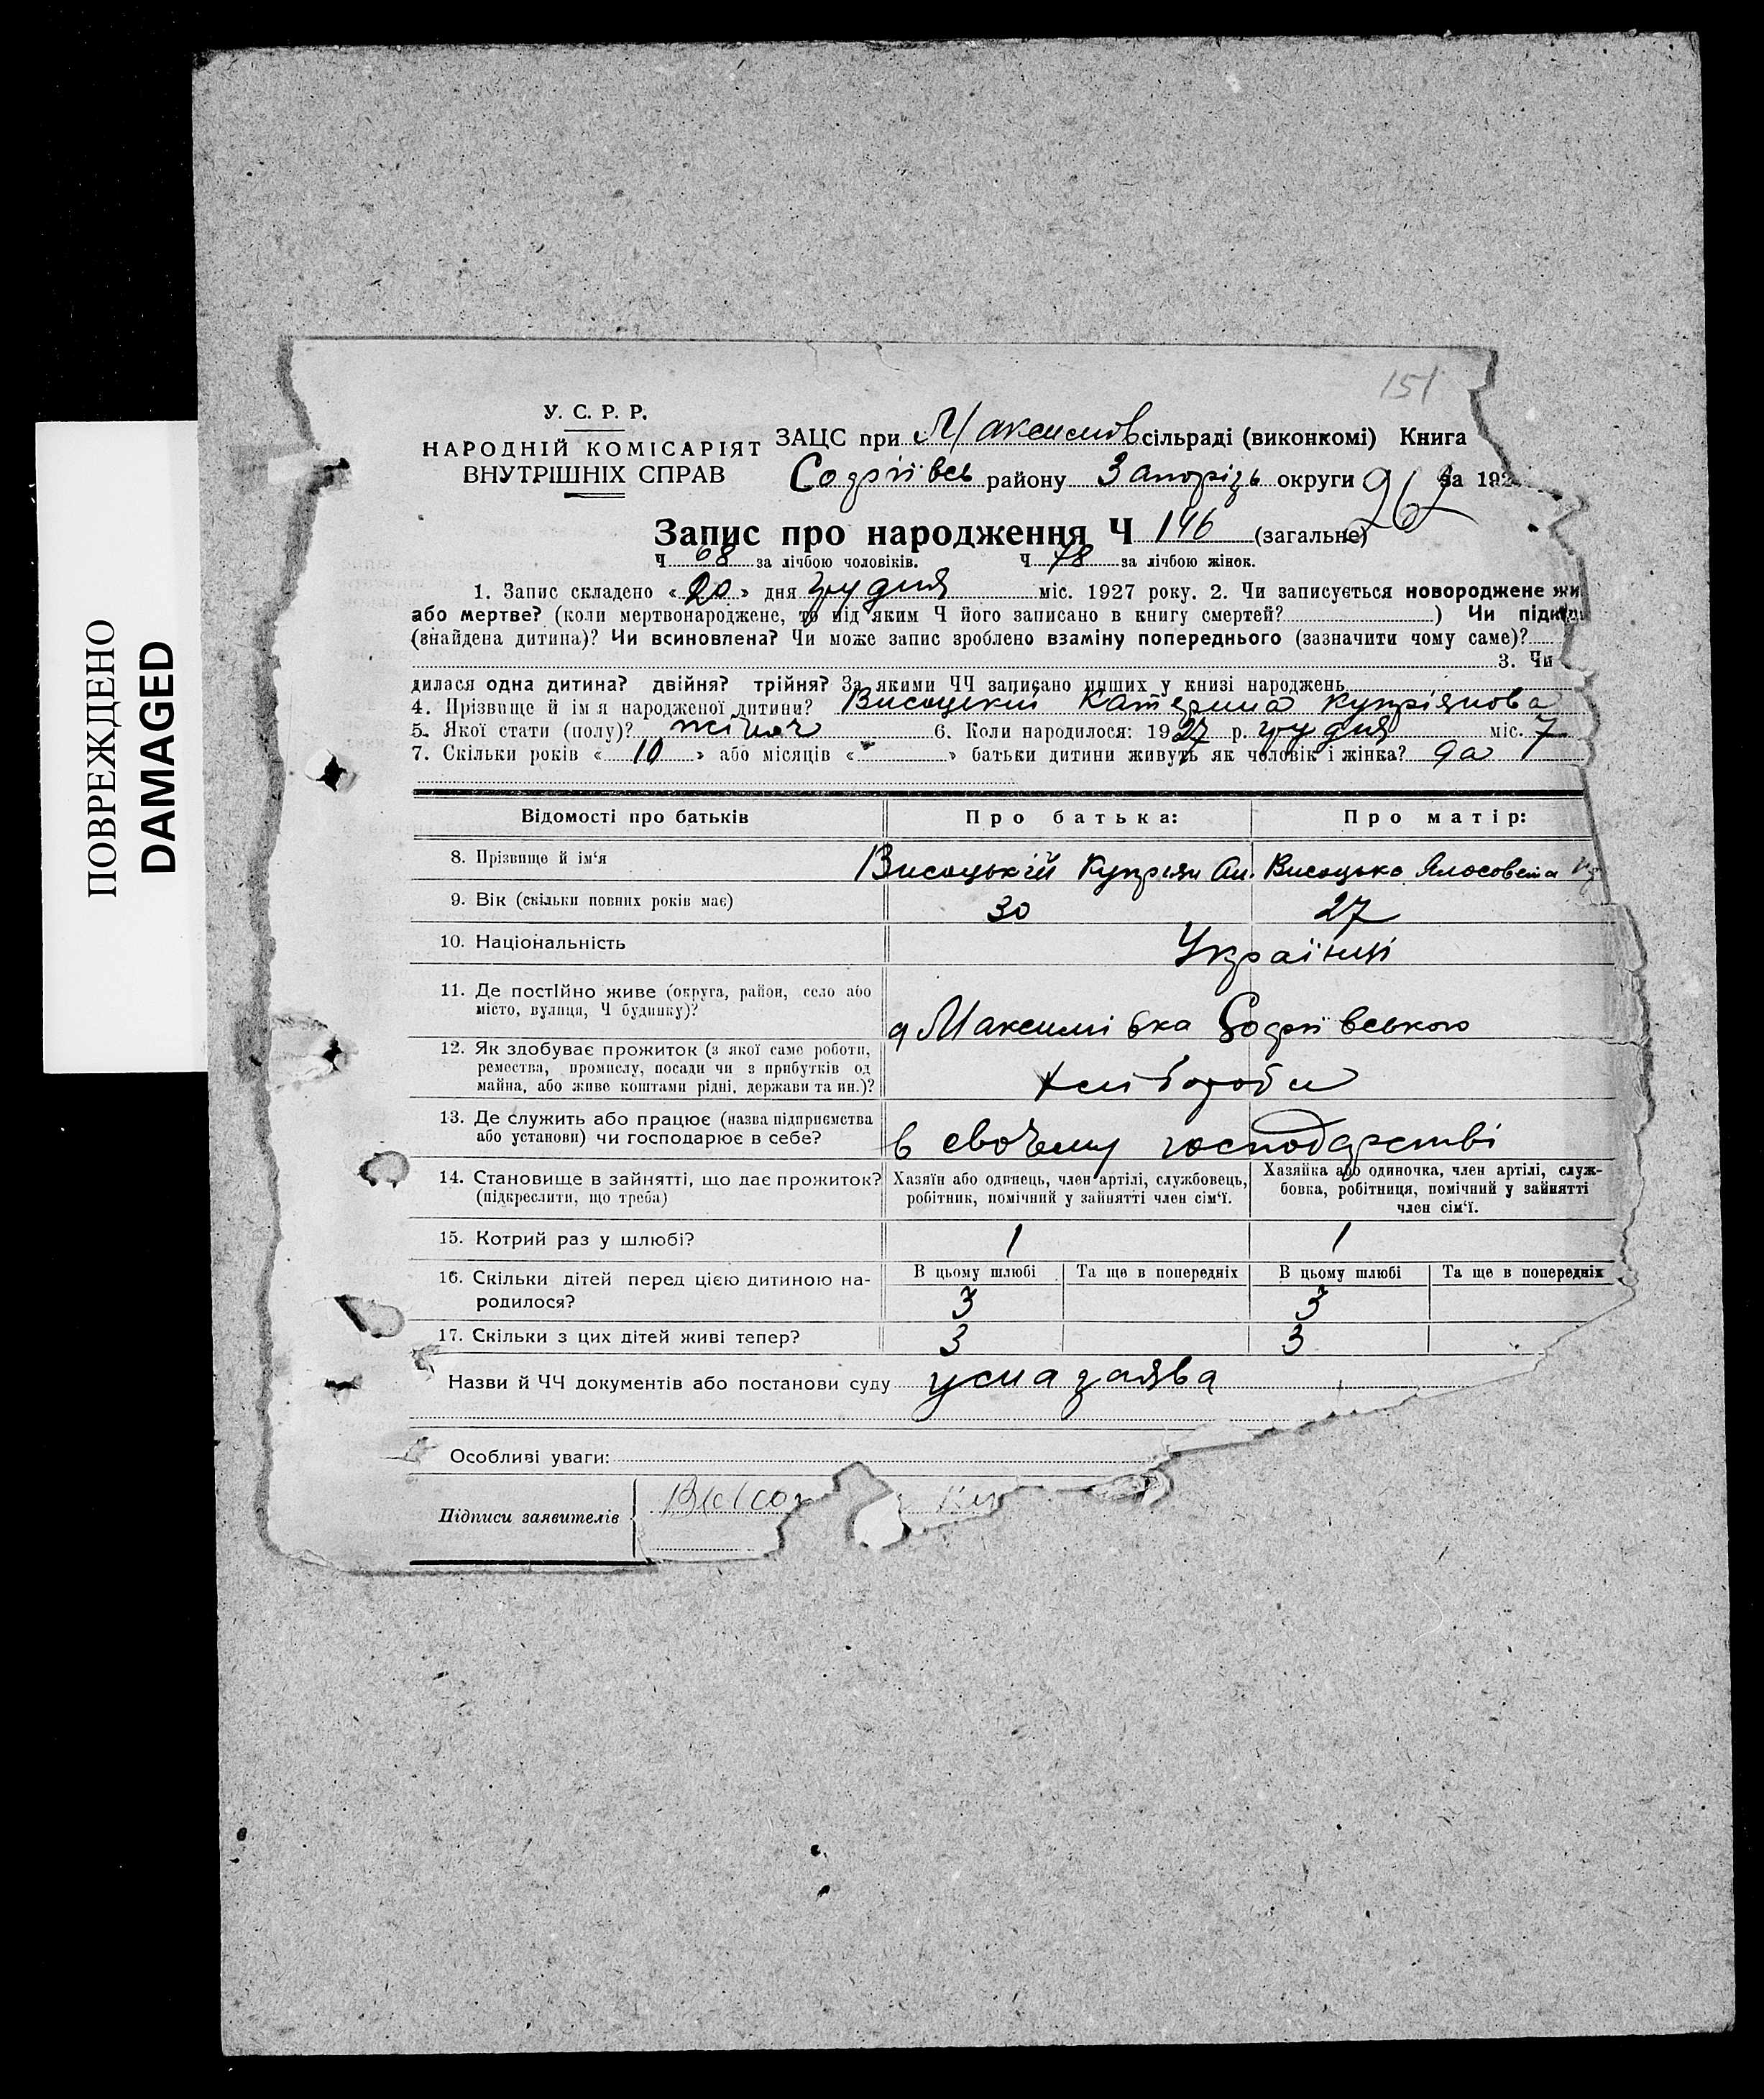 ПОВРЕЖДЕНО
DAMAGED
151
У. С. Р. Р.
НАРОДНІЙ КОМІСАРІЯТ
ВНУТРІШНІХ СПРАВ
ЗАЦС при Максимов сільраді (виконкомі) Книга
району Запорізь округи за 192
Запис про народження Ч 146 (загальне)
Ч 68 за лічбою чоловіків. Ч 78 за лічбою жінок.
1. Запис складено « 20 » дня грудня міс. 1927 року. 2. Чи записується новороджене жи
або мертве? (коли мертвонароджене, то під яким Ч його записано в книгу смертей? ) Чи підки
(знайдена дитина)? Чи всиновлена? Чи може запис зроблено взаміну попереднього (зазначити чому саме)?
3. Чи
дилася одна дитина? двійня? трійня? За якими ЧЧ записано инших у книзі народжень
4. Прізвище й ім я народженої дитини? Висоцький Катерина Купріянова
5. Якої стати (полу)? жіноч 6. Коли народилося: 1927 р. грудня міс. 7
7. Скільки років « 10 » або місяців « - » батьки дитини живуть як чоловік і жінка? да
Відомості про батьків Про батька: Про матір:
8. Прізвище й ім‘я Висоцькій Купріян Ан. Висоцька
9. Вік (скільки повних років має) 30 27
10. Національність Українці
11. Де постійно живе (округа, район, село або
місто, вулиця, Ч будинку)? Максимівка
12. Як здобуває прожиток (з якої саме роботи,
ремества, промислу, посади чи з прибутків од
майна, або живе коштами рідні, держави та ин.)? хлібороби
13. Де служить або працює (назва підприємства
або установи) чи господарює в себе? в своєму господарстві
14. Становище в зайнятті, що дає прожиток?
(підкреслити, що треба)
Хазяїн або одинець, член артілі, службовець,
робітник, помічний у зайнятті член сім‘ї.
Хазяйка або одиночка, член артілі, служ-
бовка, робітниця, помічний у зайнятті
член сім‘ї.
15. Котрий раз у шлюбі? 1 1
16. Скільки дітей перед цією дитиною на-
родилося?
В цьому шлюбі Та ще в попередніх В цьому шлюбі Та ще в попередніх
3 3
17. Скільки з цих дітей живі тепер? 3 3
Назви й ЧЧ документів або постанови суду усна заява
Особливі уваги:
Підписи заявителів